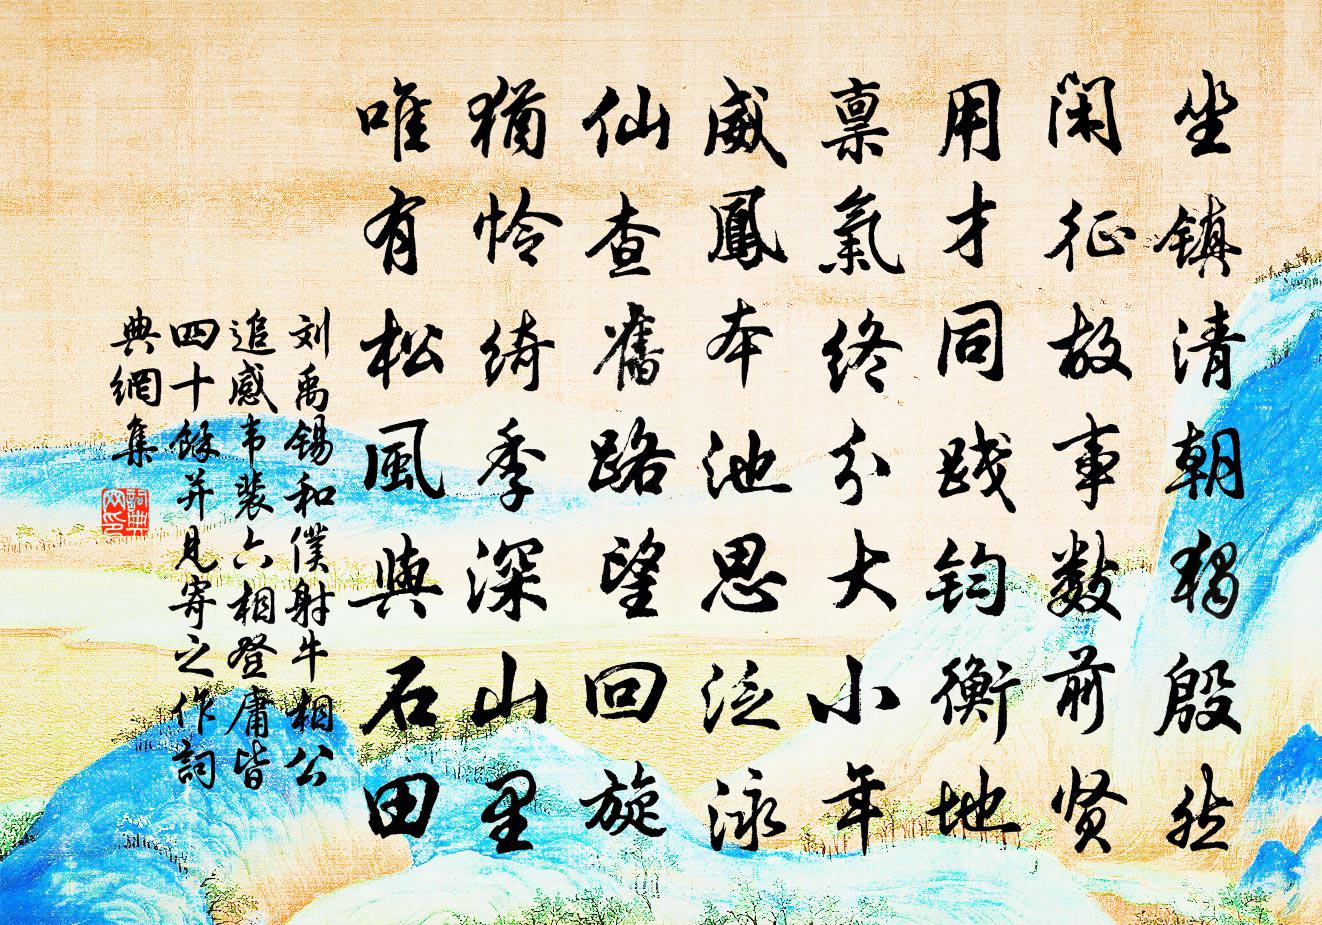 坐镇清朝独殷然
闲征故事数前贤
用才同践钧衡地
禀氣终分大小年
威鳳本池思泛泳
仙查舊路望回旋
猶怜绮季深山里
唯有松風與石田
刘禹锡和僕射牛相公
追感韦裴六相登庸皆
四十餘并見寄之作詞
典網集